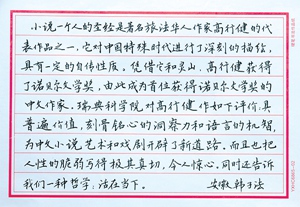 小说一个人的圣经是著名旅法华人作家高行健的代
表作品之一，它对中国特殊时代进行了深刻的描绘，
具有一定的自传性质。凭借它和灵山，高行健获得
了诺贝尔文学奖，由此成为首位获得诺贝尔文学奖的
中文作家。瑞典科学院对高行健作如下评价：具
普遍价值，刻骨铭心的洞察力和语言的机智，
为中文小说艺术和戏剧开辟了新道路。而且也把
人性的脆弱写得极其真切，令人惊心。同时还告诉
我们一种哲学：活在当下。 安徽韩子法